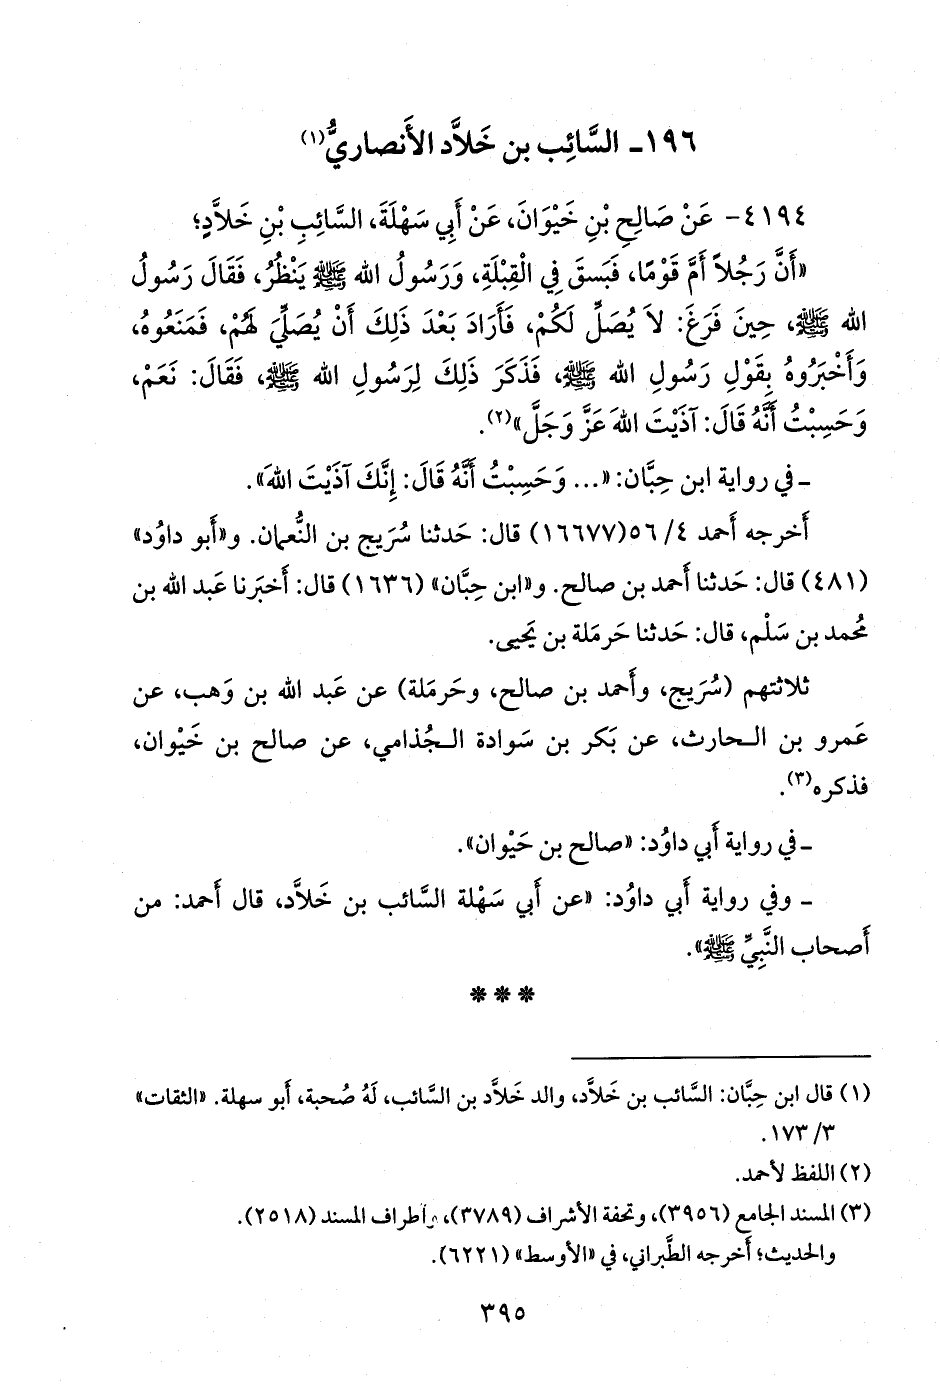 ١٩٦ـ السَّائِب بن خَلاَّد الأَنصاريُّ(١)
٤١٩٤- عَنْ صَالِحِ بْنِ خَيْوَانَ، عَنْ أَبِي سَهْلَةَ، السَّائِبِ بْنِ خَلاَّدٍ؛
«أَنَّ رَجُلاً أَمَّ قَوْمًا، فَبَسَقَ فِي الْقِبْلَةِ، وَرَسُولُ الله ﷺ يَنْظُرُ، فَقَالَ رَسُولُ
الله ﷺ، حِينَ فَرَغَ: لاَ يُصَلِّ لَكُمْ، فَأَرَادَ بَعْدَ ذَلِكَ أَنْ يُصَلِّيَ لَهُمْ، فَمَنَعُوهُ،
وَأَخْبَرُوهُ بِقَوْلِ رَسُولِ الله ﷺ، فَذَكَرَ ذَلِكَ لِرَسُولِ الله ﷺ، فَقَالَ: نَعَمْ،
وَحَسِبْتُ أَنَّهُ قَالَ: آذَيْتَ اللهَ عَزَّ وَجَلَّ»(٢).
ـ في رواية ابن حِبَّان: «... وَحَسِبْتُ أَنَّهُ قَالَ: إِنَّكَ آذَيْتَ اللهَ».
أَخرجه أَحمد ٤/ ٥٦(١٦٦٧٧) قال: حَدثنا سُرَيج بن النُّعمان. و«أَبو داوُد»
(٤٨١) قال: حَدثنا أَحمد بن صالح. و«ابن حِبَّان» (١٦٣٦) قال: أَخبَرنا عَبد الله بن
مُحمد بن سَلْم، قال: حَدثنا حَرمَلة بن يَحيى.
ثلاثتهم (سُرَيج، وأَحمد بن صالح، وحَرمَلة) عن عَبد الله بن وَهب، عن
عَمرو بن الـحارث، عن بَكر بن سَوادة الـجُذامي، عن صالح بن خَيْوان،
فذكره(٣).
ـ في رواية أَبي داوُد: «صالح بن حَيْوان».
ـ وفي رواية أَبي داوُد: «عن أَبي سَهْلة السَّائب بن خَلاَّد، قال أَحمد: من
أَصحاب النَّبِيِّ ﷺ».
***
(١) قال ابن حِبَّان: السَّائب بن خَلاَّد، والد خَلاَّد بن السَّائب، لَهُ صُحبة، أَبو سهلة. «الثقات»
٣/ ١٧٣.
(٢) اللفظ لأحمد.
(٣) المسند الجامع (٣٩٥٦)، وتحفة الأشراف (٣٧٨٩)، وأطراف المسند (٢٥١٨).
والحديث؛ أَخرجه الطَّبراني، في «الأوسط» (٦٢٢١).
٣٩٥